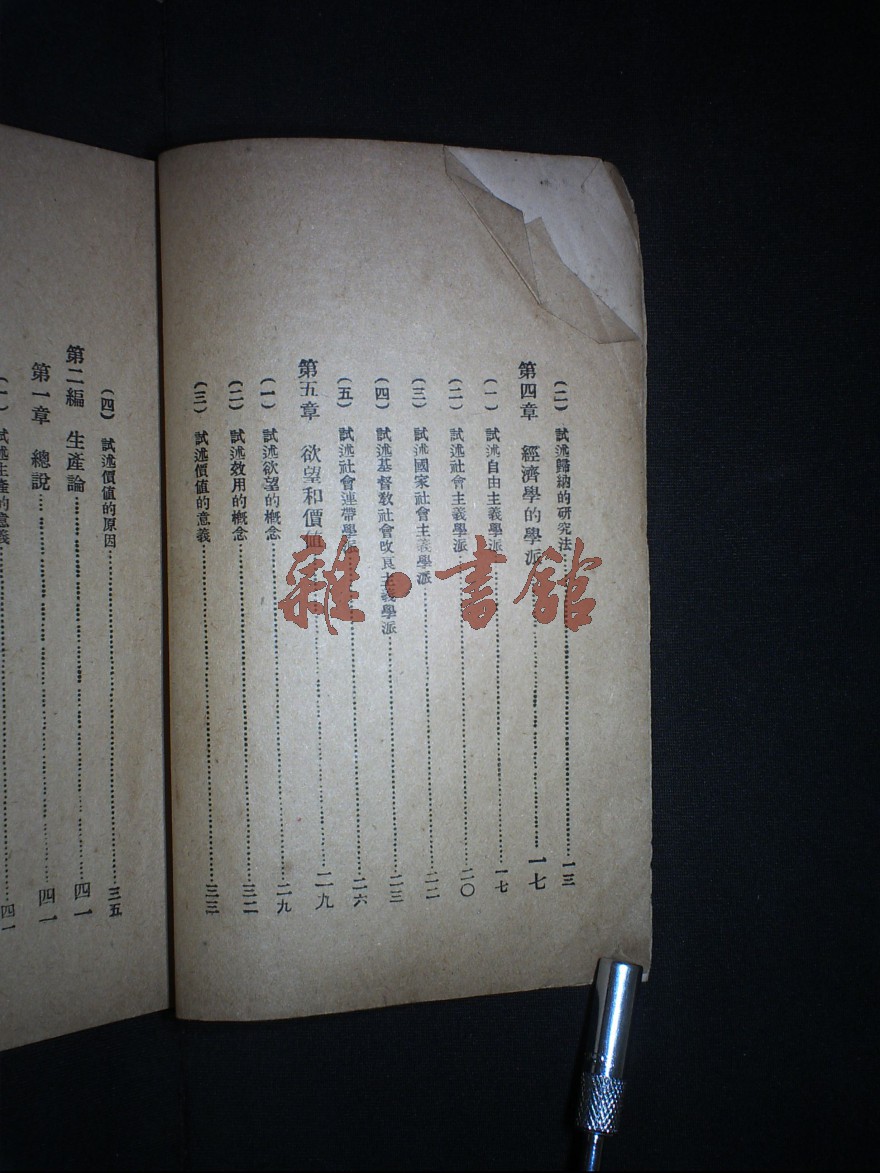 (二) 試述歸納的研究法……一三
第四章 經濟學的學派……一七
(一) 試述自由主義學派……一七
(二) 試述社會主義學派……二〇
(三) 試述國家社會主義學派……二二
(四) 試述基督教社會改良主義學派……二三
(五) 試述社會連帶學派……二六
第五章 欲望和價値……二九
(一) 試述欲望的概念……二九
(二) 試述效用的概念……三二
(三) 試述價値的意義……三三
(四) 試述價値的原因……三五
第二編 生產論……四一
第一章 總說……四一
(一) 試述生產的意義……四一
雜·書館